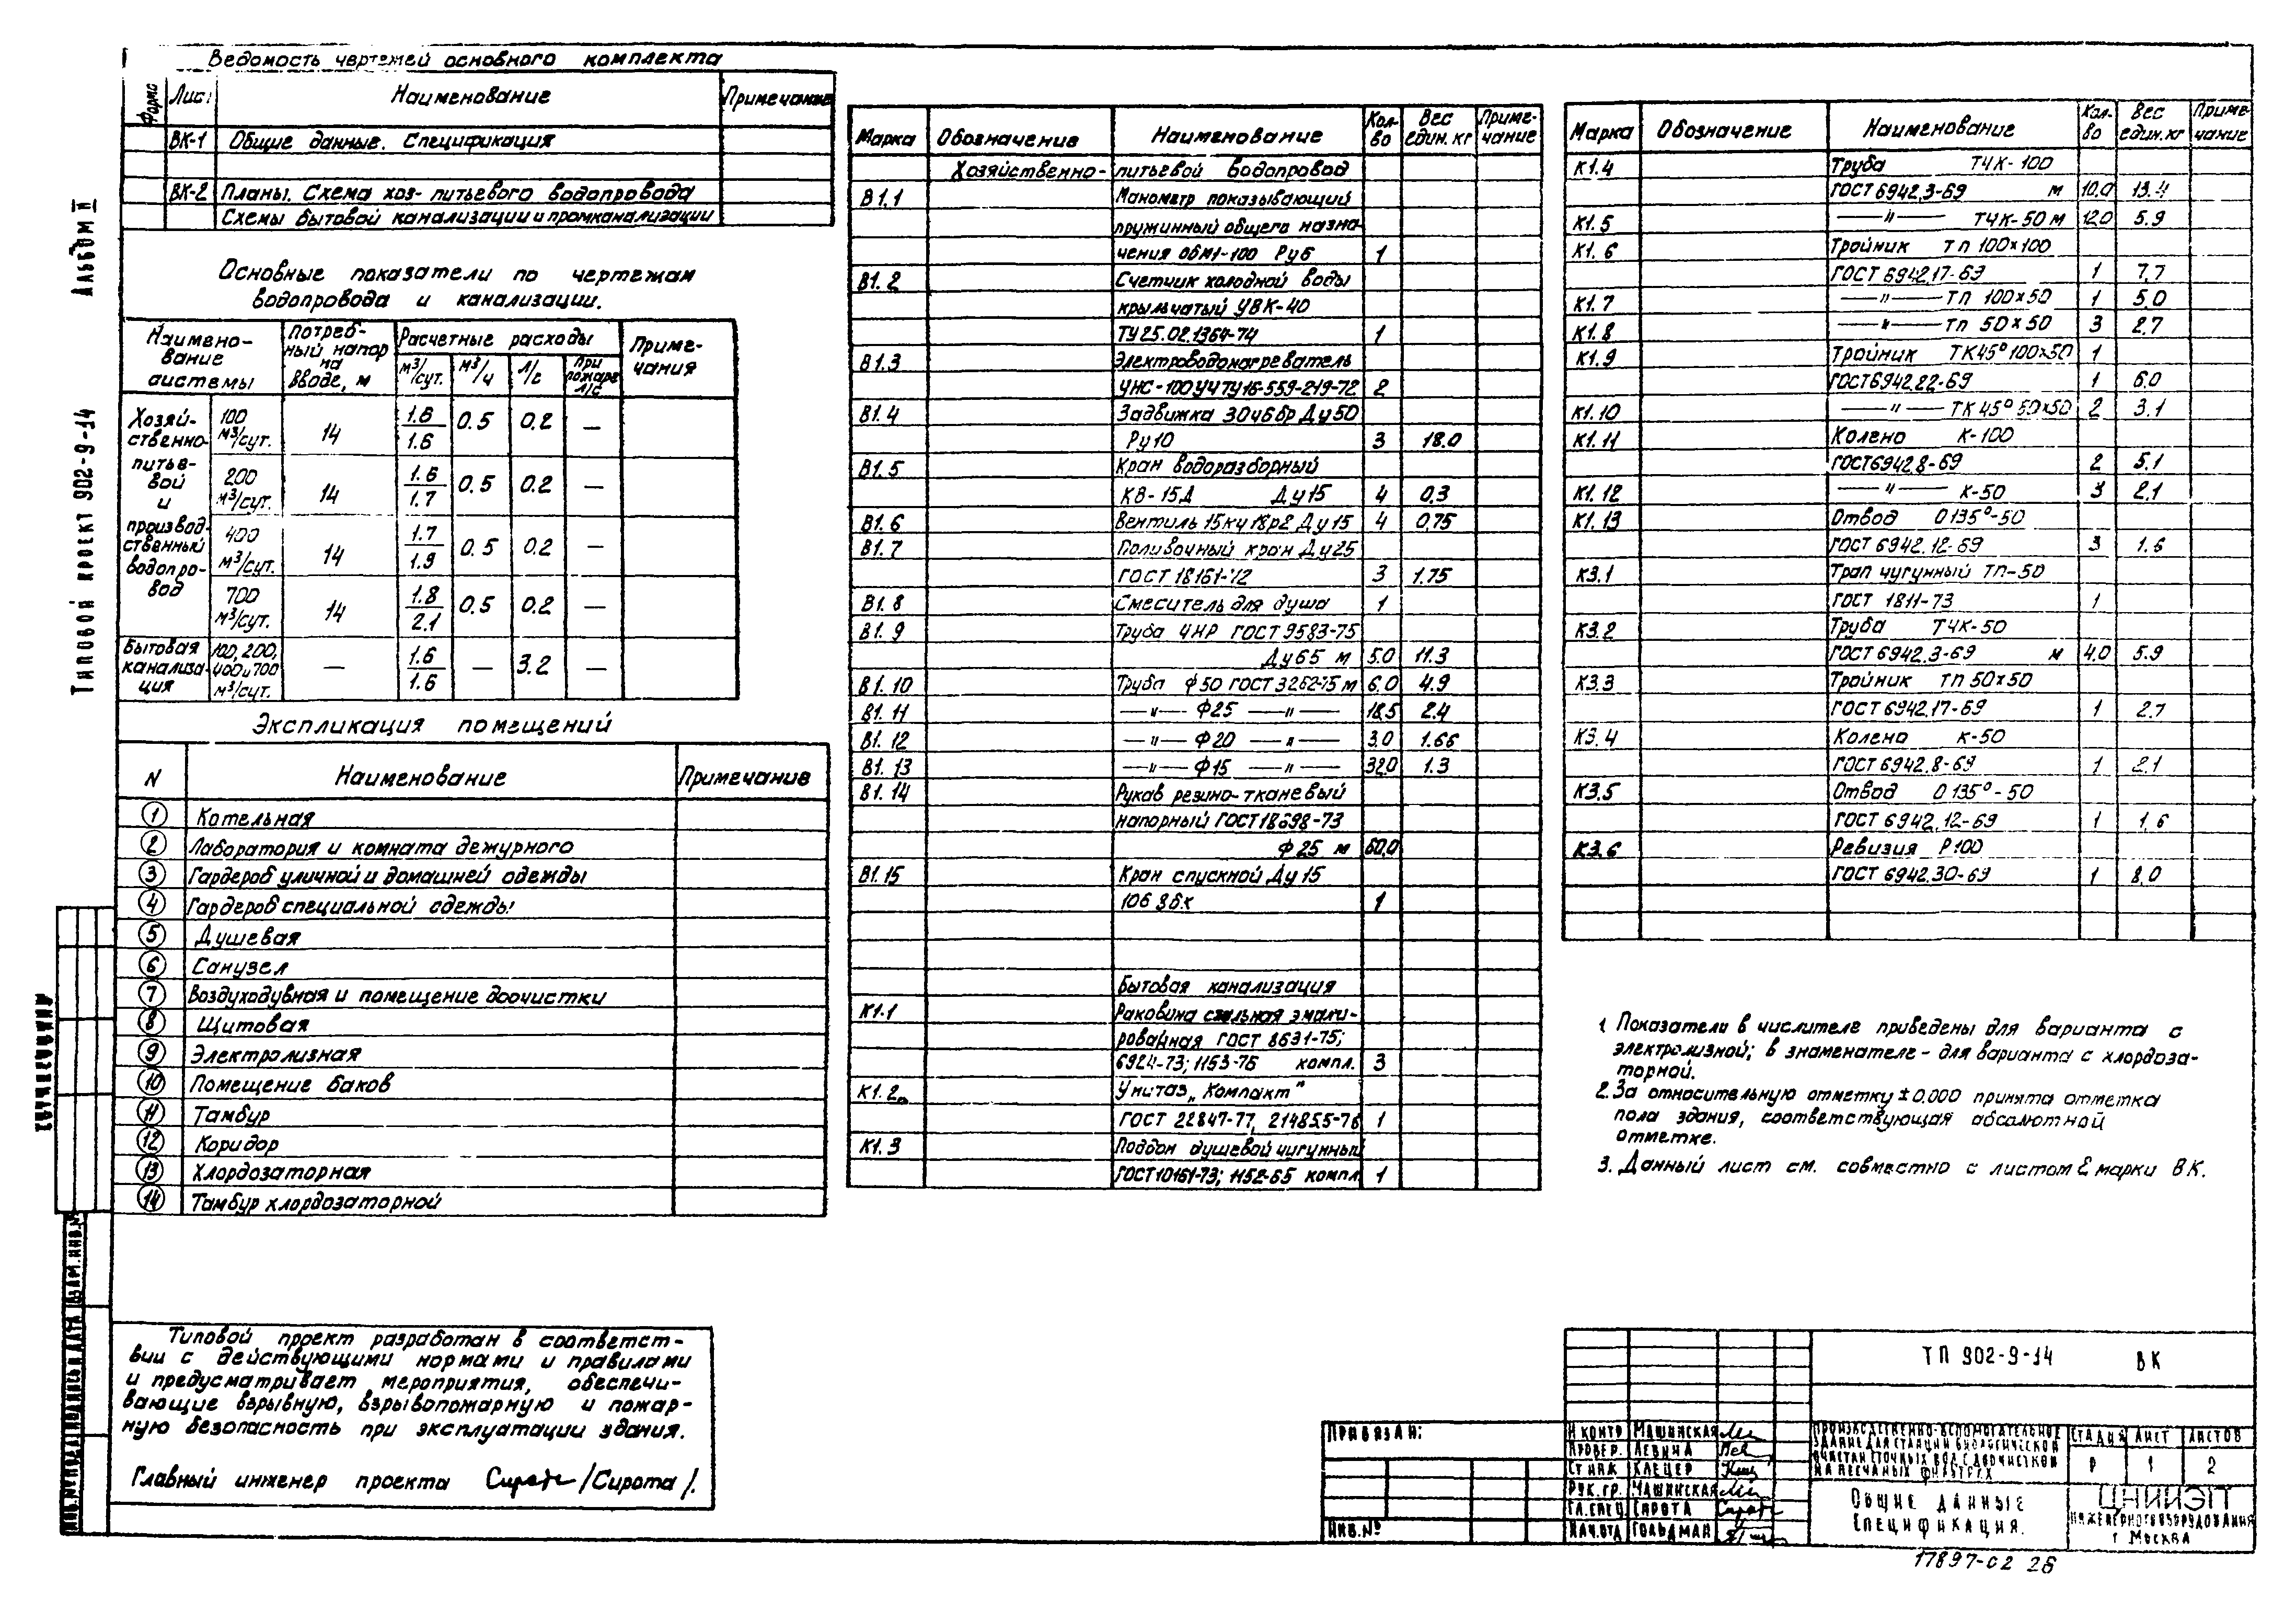 Ведомость чертежей основного комплекта
Форма Лист Наименование Примечание
ВК-1 Общие данные. Спецификация
ВК-2 Планы. Схема хоз-питьевого водопровода
Схемы бытовой канализации и промканализации
Основные показатели по чертежам
водопровода и канализации.
Наимено-
вание
системы
Потреб-
ный напор
на
вводе, м
Расчетные расходы
м³/сут. м³/ч л/с При пожаре л/с
Приме-
чания
Хозяй-
ственно-
питье-
вой
и
производ-
ственный
водопро-
вод
100 м³/сут. 14 1.6/1.6 0.5 0.2 —
200 м³/сут. 14 1.6/1.7 0.5 0.2 —
400 м³/сут. 14 1.7/1.9 0.5 0.2 —
700 м³/сут. 14 1.8/2.1 0.5 0.2 —
Бытовая
канализа-
ция
100, 200,
400 и 700
м³/сут.
— 1.6/1.6 — 3.2 —
Экспликация помещений
N Наименование Примечание
1 Котельная
2 Лаборатория и комната дежурного
3 Гардероб уличной и домашней одежды
4 Гардероб специальной одежды
5 Душевая
6 Санузел
7 Воздуходувная и помещение доочистки
8 Щитовая
9 Электролизная
10 Помещение баков
11 Тамбур
12 Коридор
13 Хлордозаторная
14 Тамбур хлордозаторной
Типовой проект разработан в соответст-
вии с действующими нормами и правилами
и предусматривает мероприятия, обеспечи-
вающие взрывную, взрывопожарную и пожар-
ную безопасность при эксплуатации здания.
Главный инженер проекта /Сирота/.
Марка Обозначение Наименование Кол-во Вес един. кг Приме-чание
Хозяйственно-питьевой водопровод
В1.1 Манометр показывающий
пружинный общего назна-
чения ОБМ1-100 Ру6 1
В1.2 Счетчик холодной воды
крыльчатый УВК-40
ТУ25.02.1364-74 1
В1.3 Электроводонагреватель
УНС-100У4 ТУ16-559-219-72 2
В1.4 Задвижка 30ч6бр Ду50
Ру10 3 18.0
В1.5 Кран водоразборный
КВ-15Д Ду15 4 0,3
В1.6 Вентиль 15кч18р2 Ду15 4 0,75
В1.7 Поливочный кран Ду25
ГОСТ 18161-72 3 1.75
В1.8 Смеситель для душа 1
В1.9 Труба ЧНР ГОСТ 9583-75
Ду65 м 5.0 11.3
В1.10 Труба ф50 ГОСТ 3262-75 м 6.0 4.9
В1.11 —"— ф25 —"— 18.5 2.4
В1.12 —"— ф20 —"— 3.0 1.66
В1.13 —"— ф15 —"— 32.0 1.3
В1.14 Рукав резино-тканевый
напорный ГОСТ 18698-73
ф25 м 60,0
В1.15 Кран спускной Ду15
10б8бк 1
Бытовая канализация
К1.1 Раковина стальная эмали-
рованная ГОСТ 8631-75;
6924-73; 1153-76 компл. 3
К1.2 Унитаз „Компакт"
ГОСТ 22847-77, 21485.5-76 1
К1.3 Поддон душевой чугунный
ГОСТ 10161-73; 1152-65 компл 1
Марка Обозначение Наименование Кол-во Вес един. кг Приме-чание
К1.4 Труба ТЧК-100
ГОСТ 6942.3-69 м 10.0 13.4
К1.5 —"— ТЧК-50 м 12.0 5.9
К1.6 Тройник ТП 100х100
ГОСТ 6942.17-69 1 7,7
К1.7 —"— ТП 100х50 1 5,0
К1.8 —"— ТП 50х50 3 2.7
К1.9 Тройник ТК45° 100х50 1
ГОСТ 6942.22-69 1 6.0
К1.10 —"— ТК 45° 50х50 2 3.1
К1.11 Колено К-100
ГОСТ 6942.8-69 2 5.1
К1.12 —"— К-50 3 2.1
К1.13 Отвод О135°-50
ГОСТ 6942.12-69 3 1.6
К3.1 Трап чугунный ТП-50
ГОСТ 1811-73 1
К3.2 Труба ТЧК-50
ГОСТ 6942.3-69 м 4.0 5.9
К3.3 Тройник ТП 50х50
ГОСТ 6942.17-69 1 2.7
К3.4 Колено К-50
ГОСТ 6942.8-69 1 2.1
К3.5 Отвод О135°-50
ГОСТ 6942.12-69 1 1,6
К3.6 Ревизия Р100
ГОСТ 6942.30-69 1 8.0
1 Показатели в числителе приведены для варианта с
электролизной; в знаменателе - для варианта с хлордоза-
торной.
2. За относительную отметку ±0,000 принята отметка
пола здания, соответствующая абсолютной
отметке.
3. Данный лист см. совместно с листом 2 марки ВК.
ТП 902-9-14 ВК
Привязан:
Инв.№
Н контр Машинская
Провер. Левина
Ст инж Клецер
Рук.гр. Машинская
Гл.спец Сирота
Нач.отд Гольдман
Производственно-вспомогательное
здание для станции биологической
очистки сточных вод с доочисткой
на песчаных фильтрах
Стадия Лист Листов
Р 1 2
Общие данные
Спецификация.
ЦНИИЭП
инженерного оборудования
г Москва
17897-02 26
Альбом II
Типовой проект 902-9-14
Инв.№ подл Подпись и дата Взам.инв.№